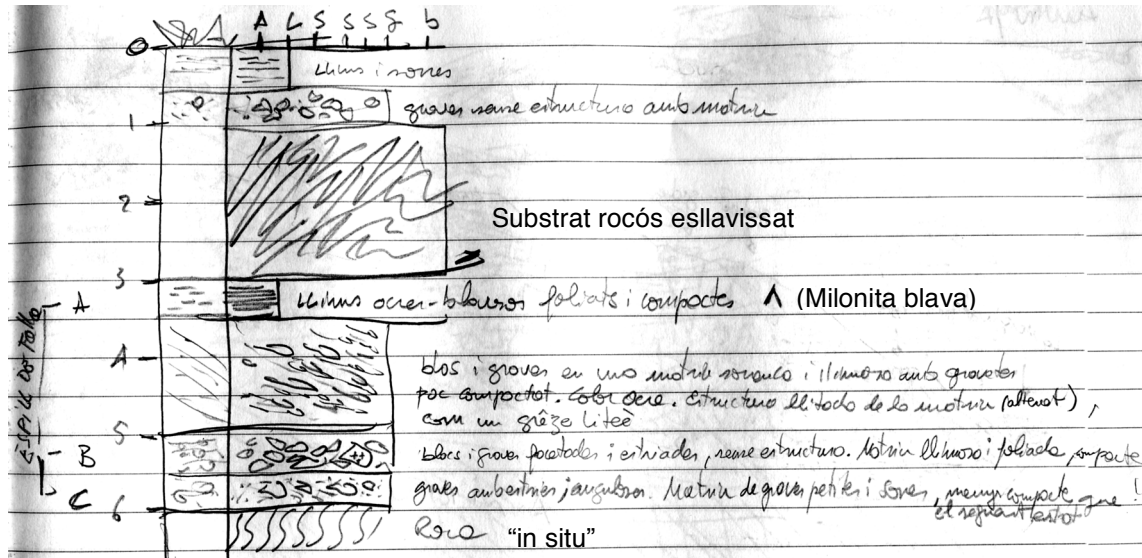 A L S S S g b
0
Llims i sorres
graves sense estructura amb matriu
1
2
Substrat rocós esllavissat
3
A
Llims ocres-blavosos foliats i compactes (Milonita blava)
ESPILL DE FALLA
4
blos i graves en una matriu sorrenca i llimosa amb gravetes
poc compactat. Color ocre. Estructura llitada de la matriu (alterat),
com un grêze liteè
5
B
blocs i graves facetades i estriades, sense estructura. Matriu llimosa i foliada, compacte
C
graves amb estries i anguloses. Matriu de graves petites i sorres, menys compacte que !
el següent estrat
6
Roca "in situ"